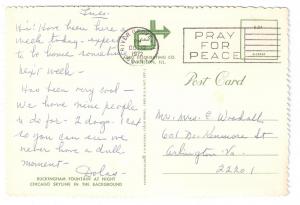 Tues.
Hi! Have been here a
week today - expect
to be home sometime
next week -
Has been very cool -
We have nine people
to do for - 2 dogs 1 cat
so you can see we
never have a dull
moment -
Dolas
BUCKINGHAM FOUNTAIN AT NIGHT
CHICAGO SKYLINE IN THE BACKGROUND
1972
PRAY
FOR
PEACE
Post Card
Mr. Mrs. E Wradall
601 No. Kenmore St
Arlington Va.
22201